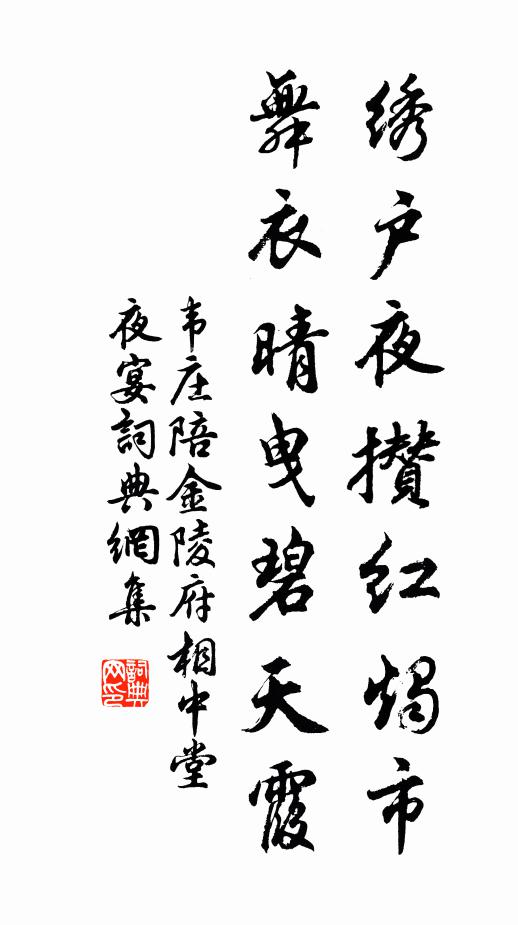 绣户夜攒红烛市
舞衣晴曳碧天霞
韦庄陪金陵府相中堂
夜宴詞典網集
詞典网印